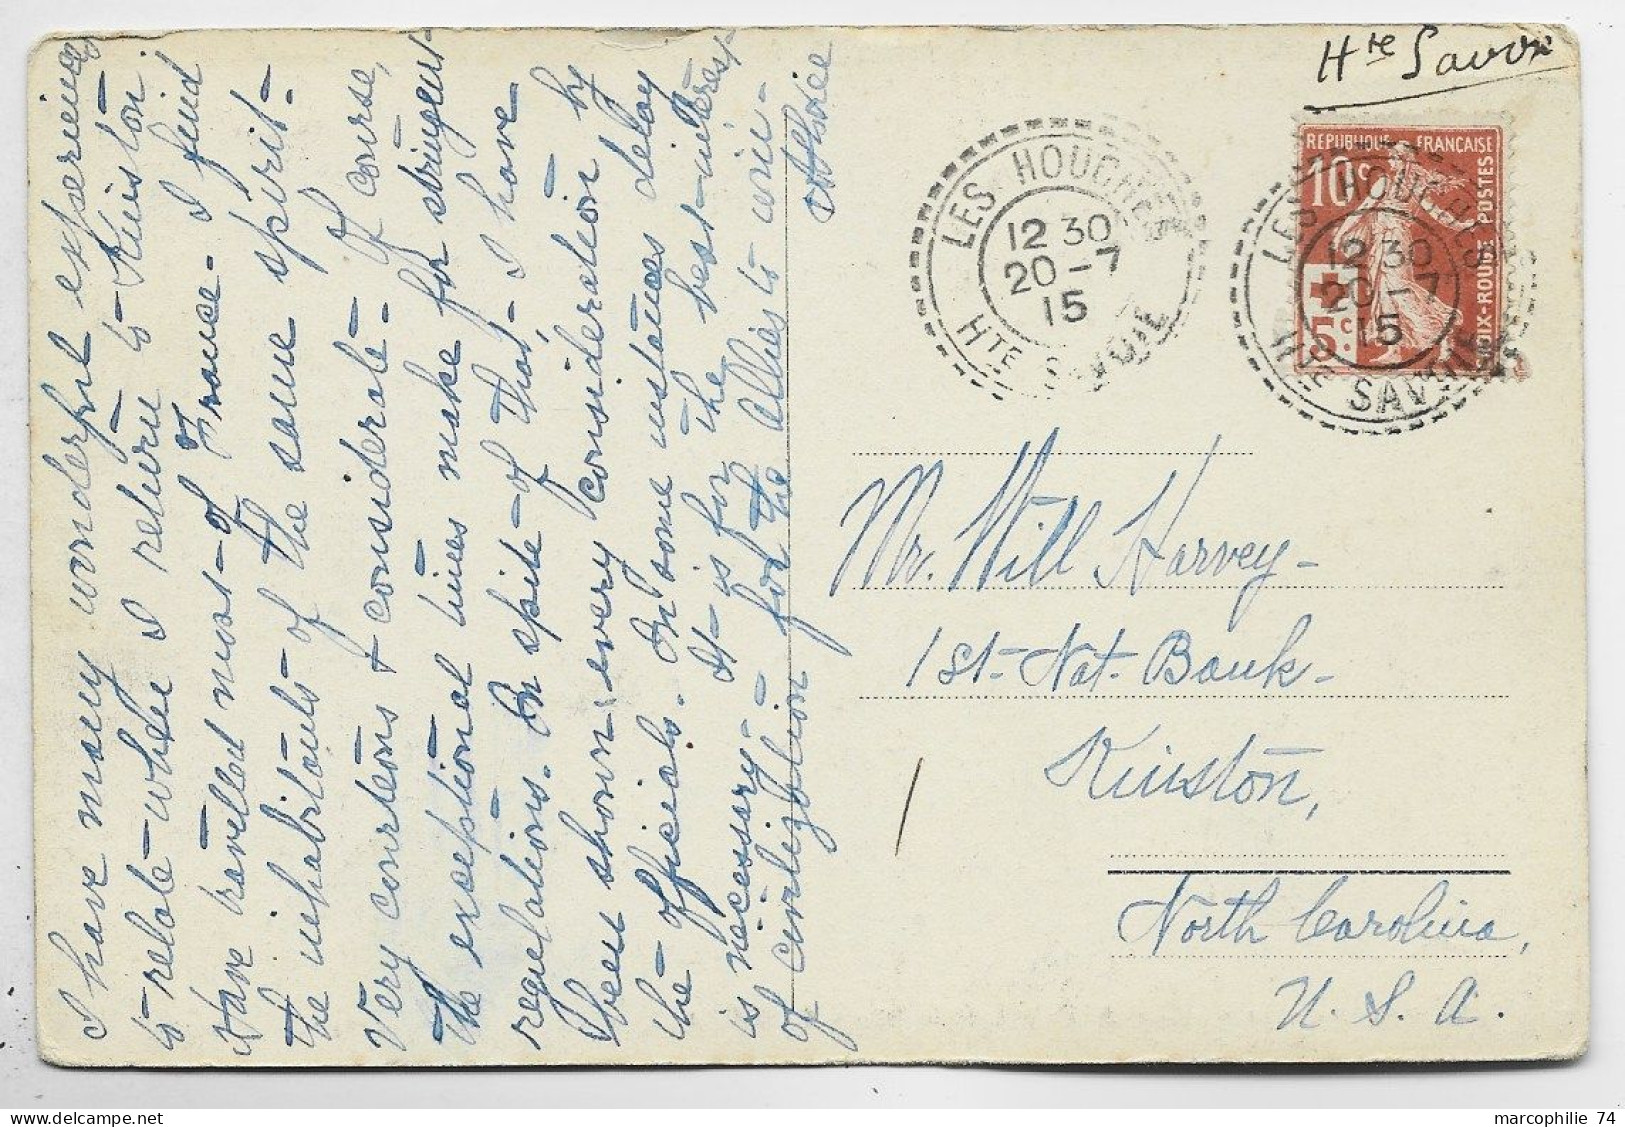 I have many wonderful experiences
to relate when I return to Kinston
Have travelled most of France. I find
the inhabitants of the same spirit.
Very courteous & considerate. Of course,
the exceptional times make for stringent
regulations. In spite of that, I have
been shown every consideration by
the officials. In some instances delay
is necessary. It is for the best interest
of civilization for the Allies to win.
Hte Savoie
LES HOUCHES
12 30
20-7
15
HTE SAVOIE
REPUBLIQUE FRANÇAISE
10c
POSTES
CROIX-ROUGE
5c
LES HOUCHES
12 30
20-7
15
HTE SAVOIE
Mr. Will Harvey
1st. Nat. Bank
Kinston,
North Carolina,
U. S. A.
marcophilie 74